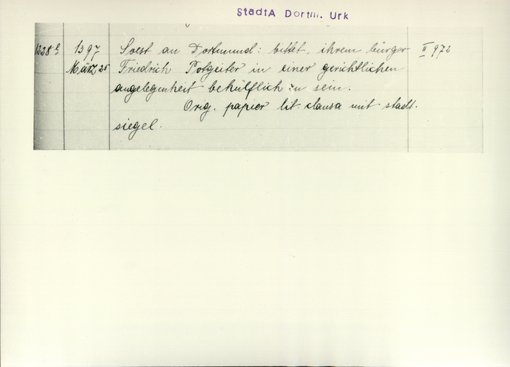 StadtA Dortm. Urk
1397 Soest an Dortmund: bittet, ihrem bürger II 972
März 25 Friedrich Potgeiter in einer gerichtlichen
angelegenheit behülflich zu sein.
Orig. papier lit. clausa mit stadt-
siegel.